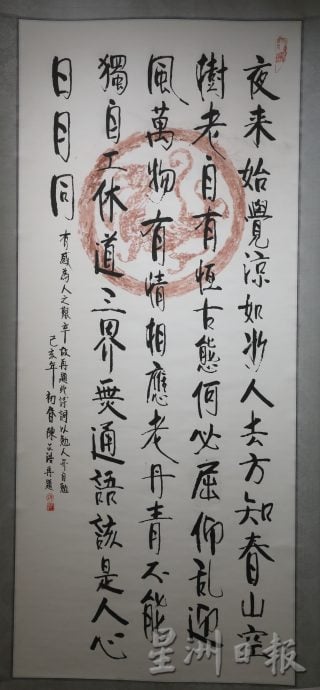 夜来始覺涼如人去方知春山空
樹老自有恆古態何必屈仰乱迎
風萬物有情相應老丹青不能
獨自工休道三界無通語該是人心
日月同
有感為人之艱辛故再題此詩詞以勉人并自勉
己亥年初春陳再題
星洲日報